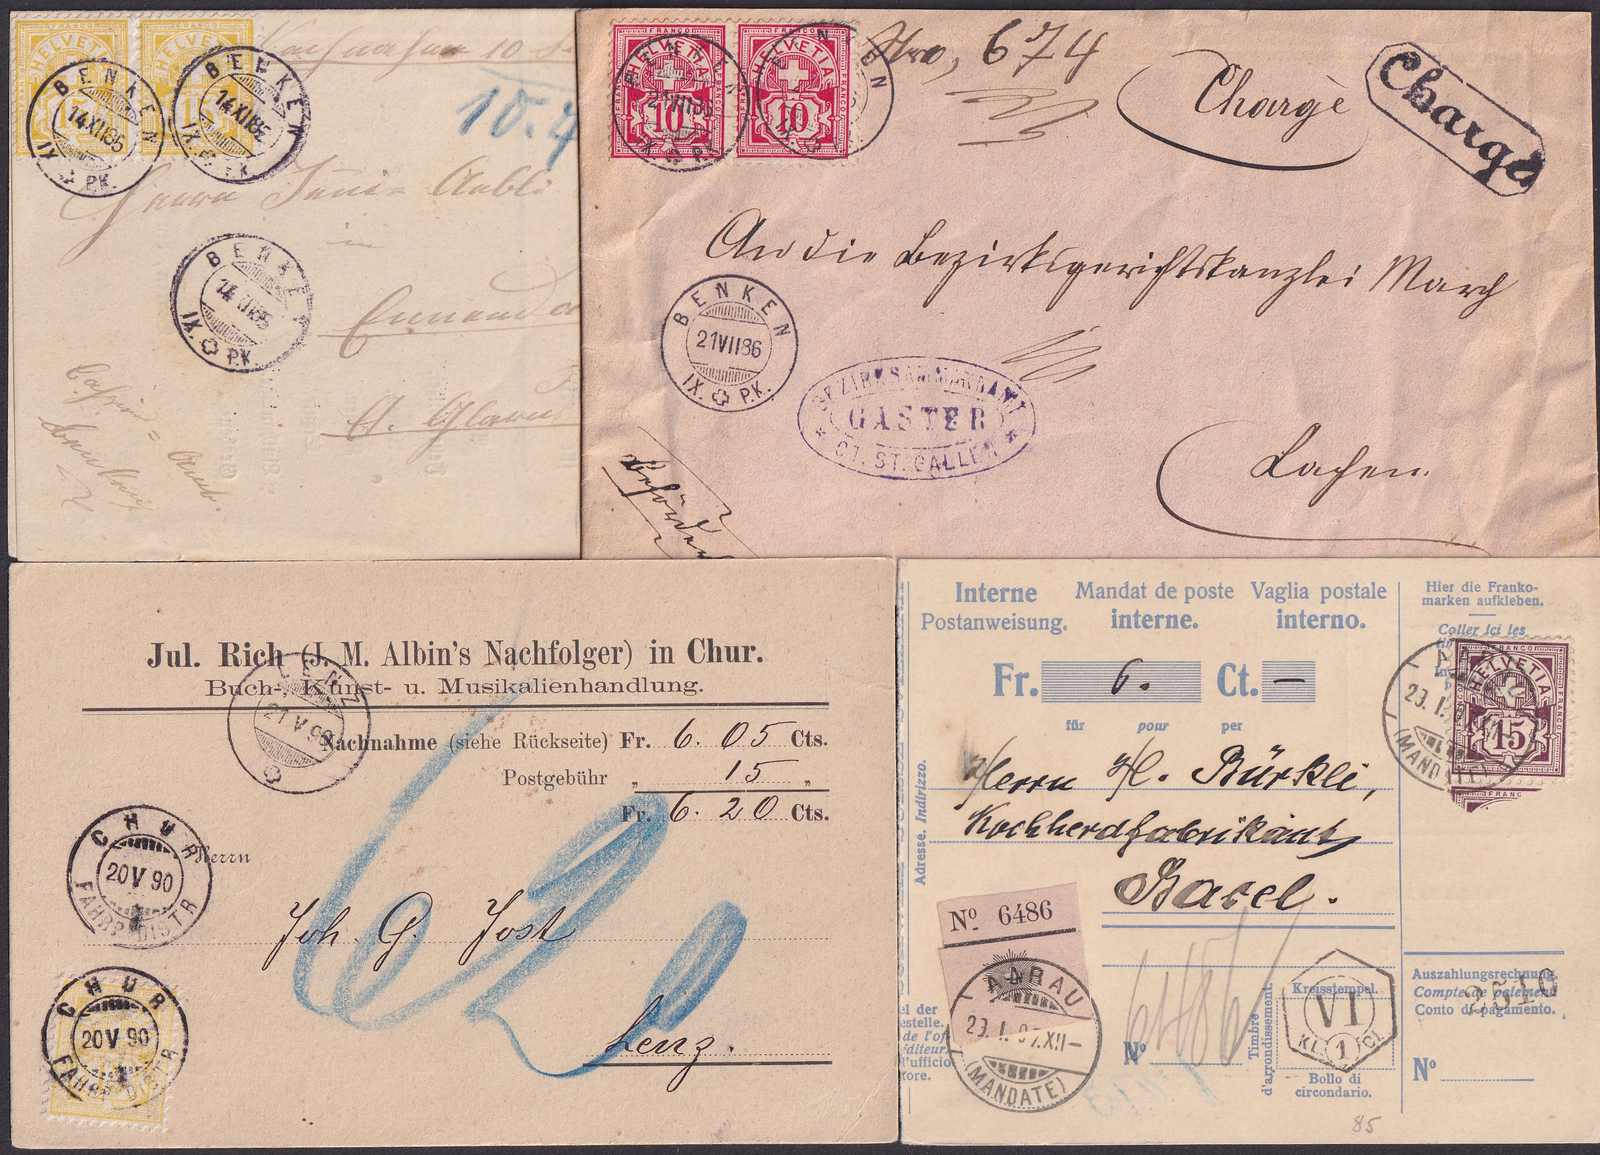 HELVETIA
HELVETIA
BENKEN
14 XII 85
IX. P.K.
BENKEN
14 XII 85
Nachnahme 10
10.
Herrn
Aebli
in
BENKEN
IX. P.K.
Ennenda
Ct. Glarus
FRANCO
HELVETIA
10
FRANCO
HELVETIA
10
BENKEN
21 VII 86
IX. P.K.
Nro, 674
Chargé
Chargé
An die Bezirksgerichtskanzlei March
BENKEN
21 VII 86
IX. P.K.
BEZIRKSAMMANNAMT
GASTER
CT. ST. GALLEN
Lachen.
Jul. Rich (J. M. Albin's Nachfolger) in Chur.
Buch-, Kunst- u. Musikalienhandlung.
LENZ
21 V 90
Nachnahme (siehe Rückseite) Fr. 6. 05 Cts.
Postgebühr „ 15 „
Fr. 6. 20 Cts.
Herrn
CHUR
20 V 90
FAHRP. DISTR
Joh. G. Jost
Lenz.
CHUR
20 V 90
FAHRP. DISTR
Interne Mandat de poste Vaglia postale
Postanweisung. interne. interno.
Hier die Franko-
marken aufkleben.
Coller ici les
Fr. 6. Ct. —
für pour per
FRANCO
HELVETIA
15
FRANC
(MANDATE)
Adresse. Indirizzo.
Herrn H. Bürkli,
Kochherdfabrikant,
Basel.
No 6486
AARAU
(MANDATE)
el der
estelle.
de l'of
diteur.
l'ufficio
tore.
No 6486
Timbre
d'arrondissement.
Kreisstempel.
VI
KL. 1 Cl.
Bollo di
circondario.
Auszahlungsrechnung.
Compte de paiement
Conto di pagamento.
2516
No
85